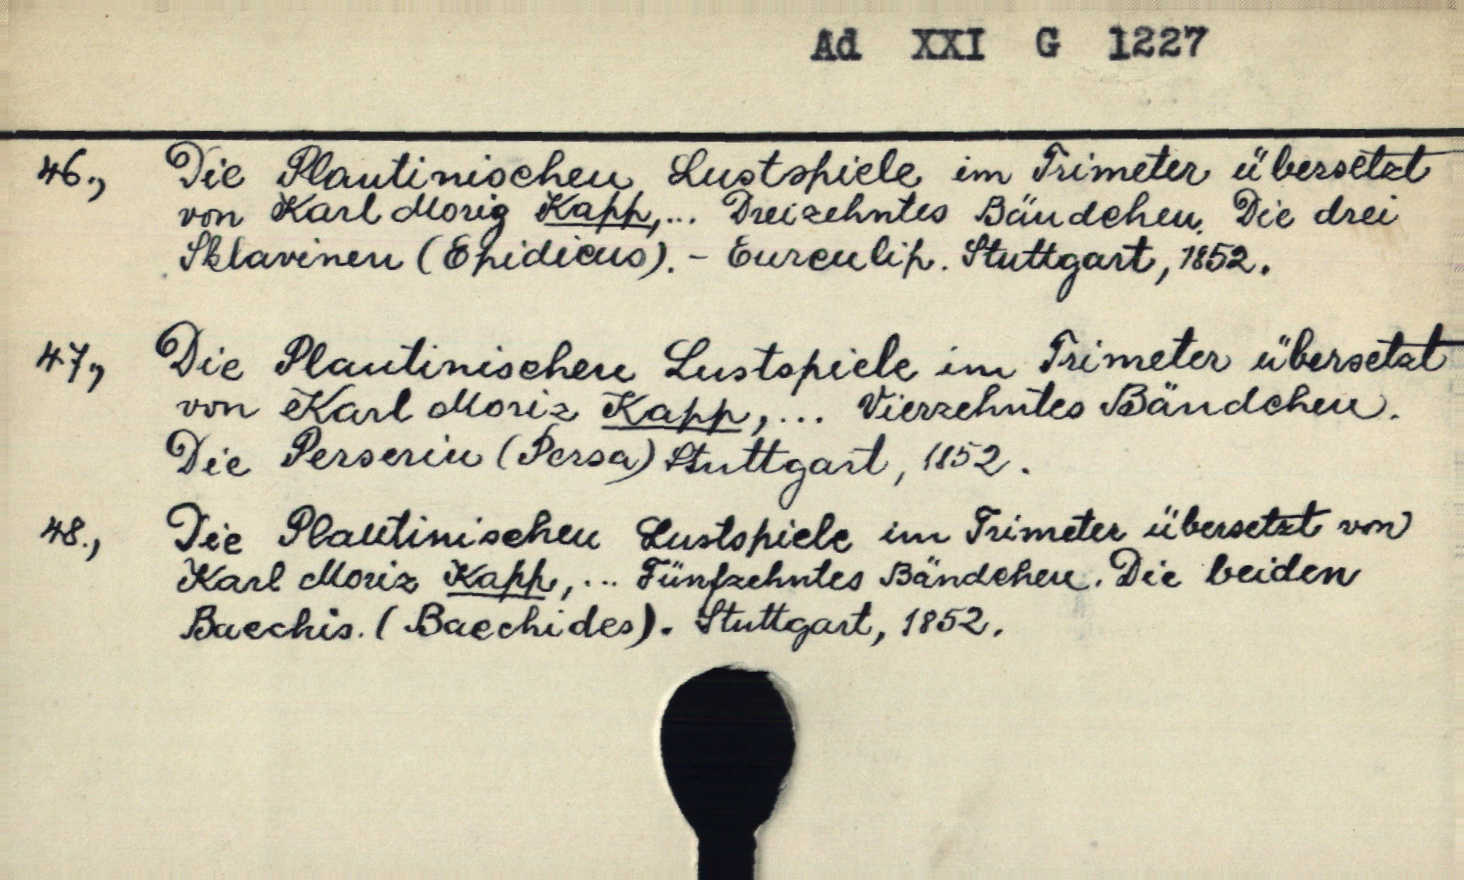 Ad XXI G 1227
46., Die Plautinischen Lustspiele im Trimeter übersetzt
von Karl Moriz Kapp,... Dreizehntes Bändchen. Die drei
Sklavinen (Epidicus). - Eurculip. Stuttgart, 1852.
47., Die Plautinischen Lustspiele im Trimeter übersetzt
von Karl Moriz Kapp,... Vierzehntes Bändchen.
Die Perserin (Persa) Stuttgart, 1852.
48., Die Plautinischen Lustspiele im Trimeter übersetzt von
Karl Moriz Kapp,... Fünfzehntes Bändchen. Die beiden
Bacchis. (Bacchides). Stuttgart, 1852.